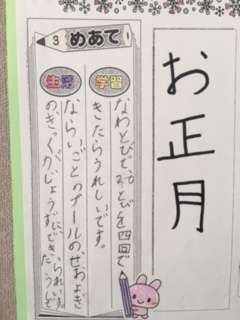 お正月
3 めあて
学習
なわとびで、とびを四回で
きたらうれしいです。
生活
ならいごとのプールのせおよぎ
のきっくがじょうずにできた